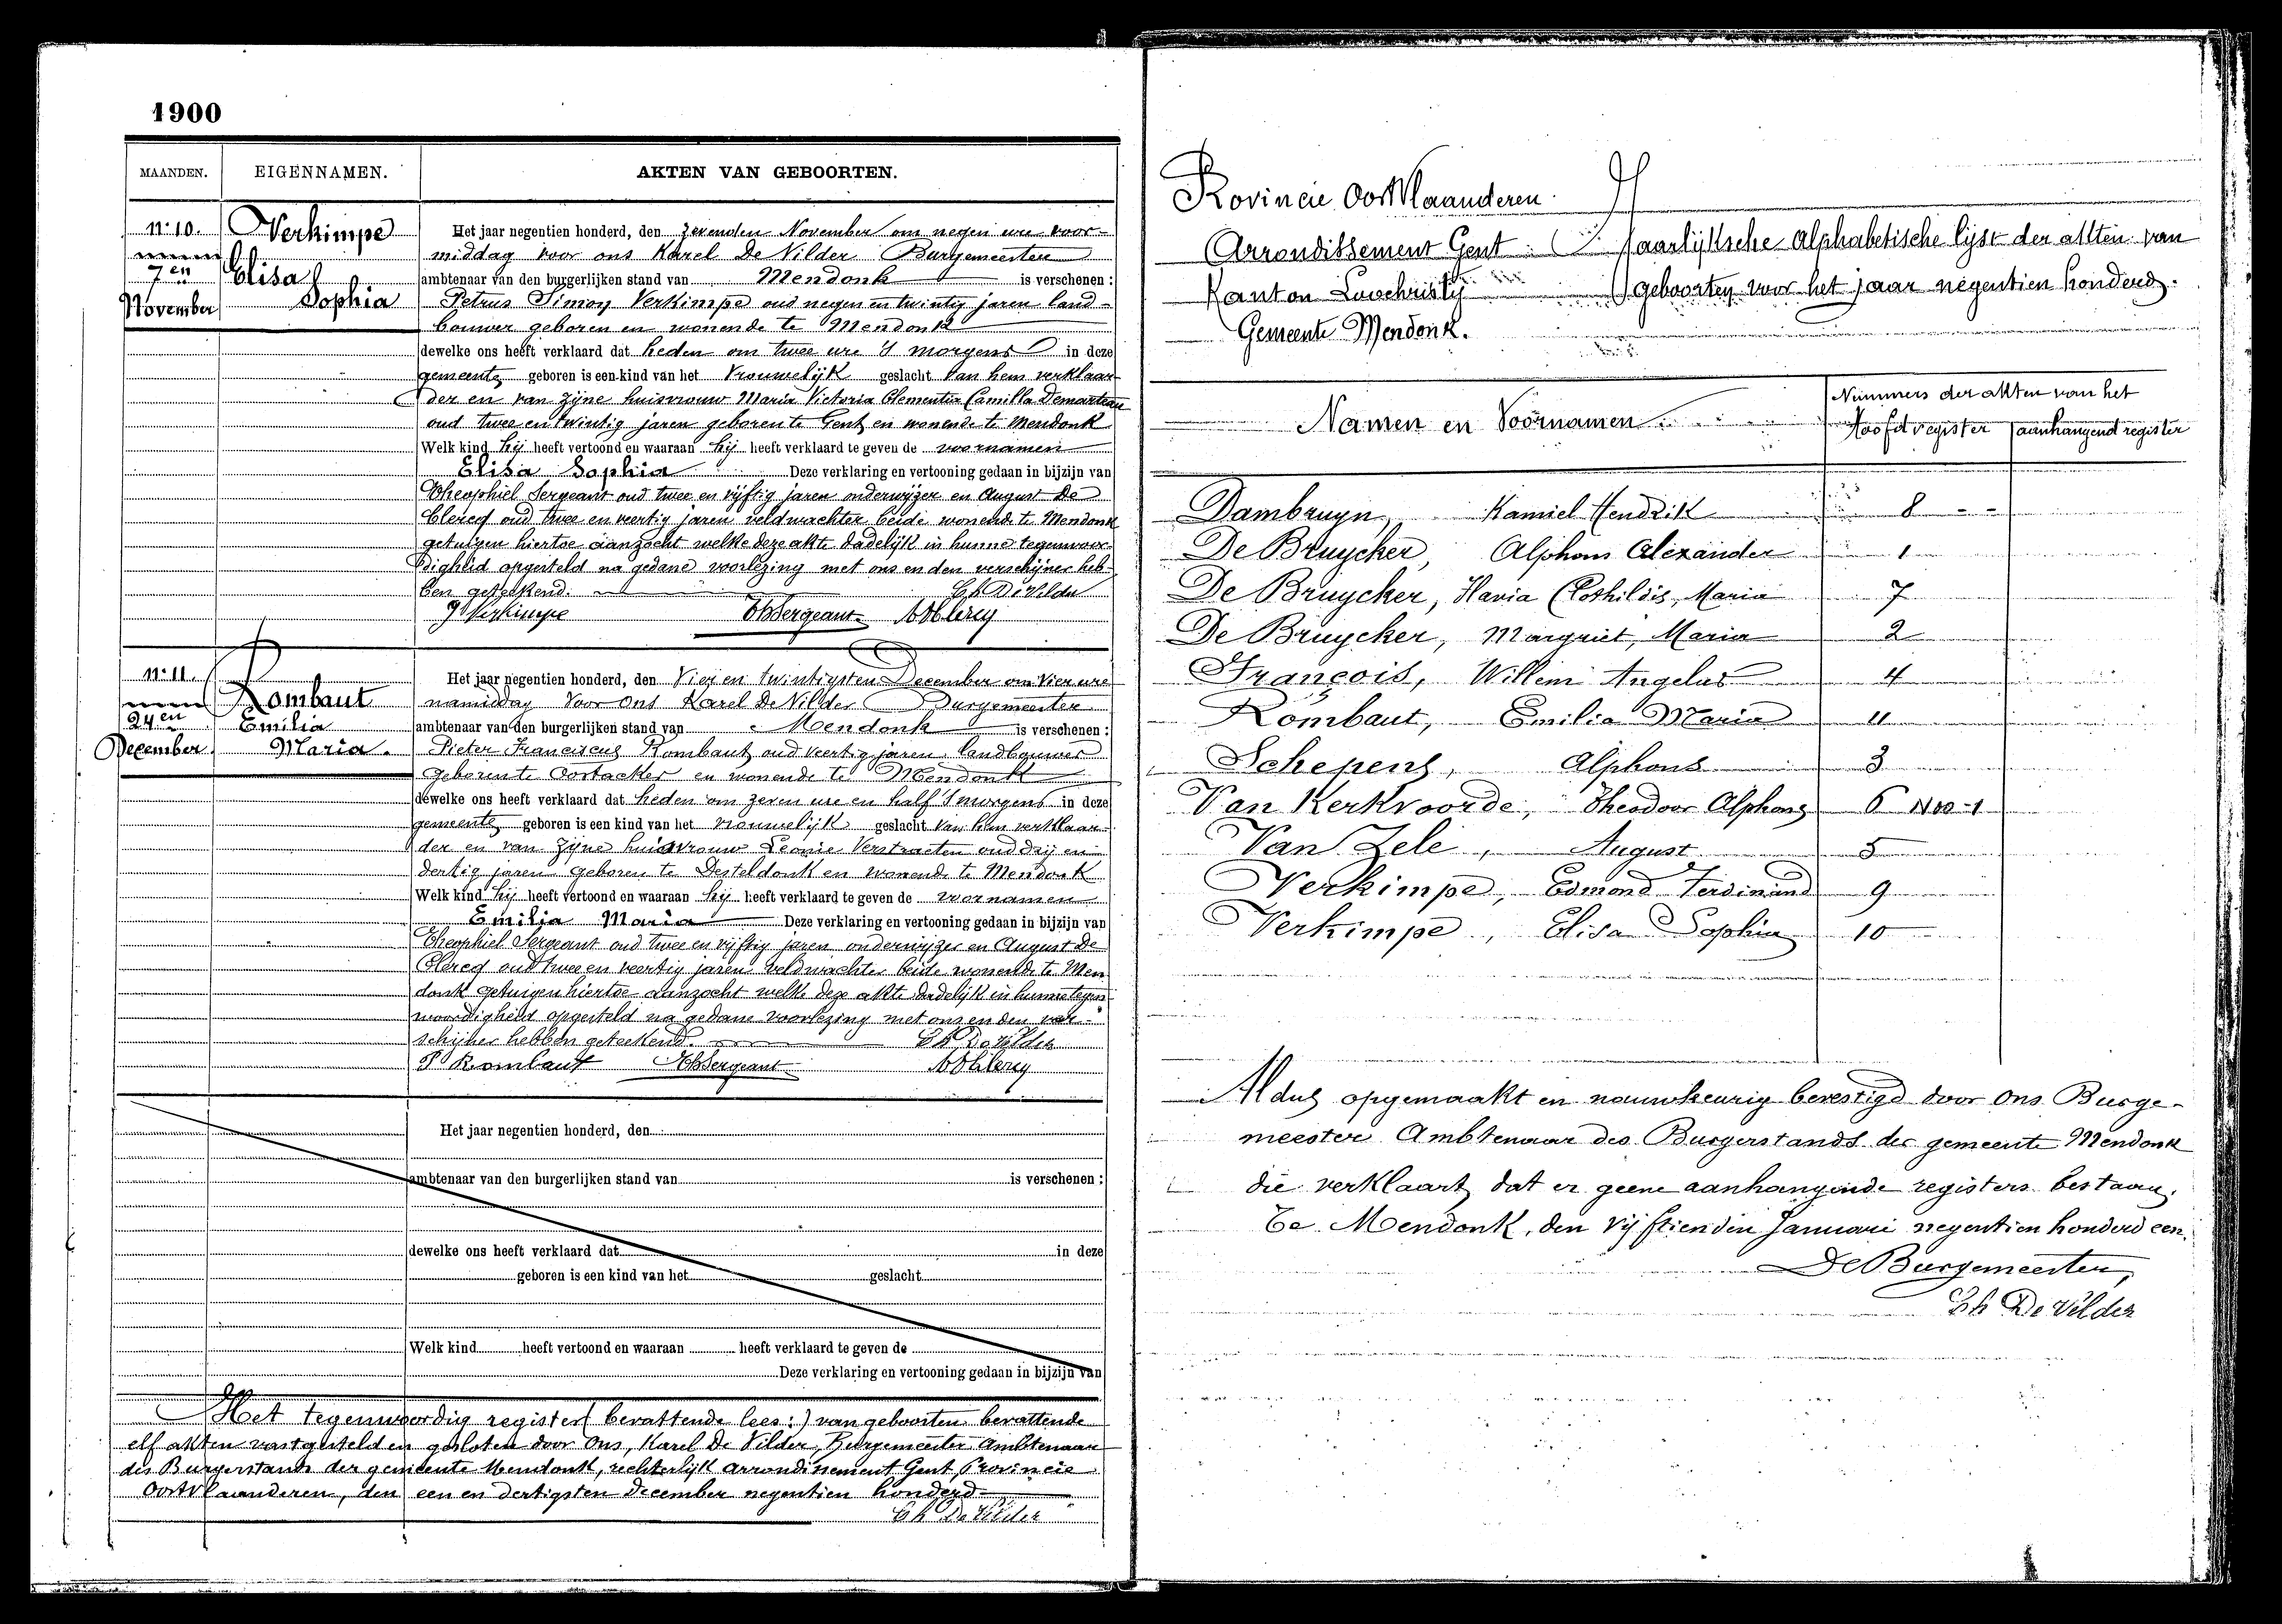 1900
MAANDEN. EIGENNAMEN. AKTEN VAN GEBOORTEN.
N° 10. Verkimpe Het jaar negentien honderd, den zevenden November om negen ure voor-
middag voor ons Karel De Vilder Burgemeester
7en Elisa ambtenaar van den burgerlijken stand van Mendonk is verschenen :
November Sophia Petrus Simoy Verkimpe oud negen en twintig jaren land-
bouwer geboren en wonende te Mendonk
dewelke ons heeft verklaard dat heden om twee ure 's morgens in deze
gemeente geboren is een kind van het Vrouwelijk geslacht Van hem verklaar-
der en van zijne huisvrouw Maria Victoria Clementia Camilla Demarteau
oud twee en twintig jaren geboren te Gent en wonende te Mendonk
Welk kind hij heeft vertoond en waaraan hij heeft verklaard te geven de voornamen
Elisa Sophia Deze verklaring en vertooning gedaan in bijzijn van
Theophiel Sergeant oud twee en vijftig jaren onderwijzer en August De
Clercq oud twee en veertig jaren veldwachter beide wonende te Mendonk
getuigen hiertoe aanzocht welke deze akte dadelijk in hunne tegenwoor-
digheid opgesteld na gedane voorlezing met ons en den verschijner heb-
ben geteekend. Ch De Vilder
P Verkimpe Th Sergeant A De Clercq
N° 11. Rombaut Het jaar negentien honderd, den Vier en twintigsten December om vier ure
namiddag Voor ons Karel De Vilder Burgemeester
24en Emilia ambtenaar van den burgerlijken stand van Mendonk is verschenen :
December Maria. Pieter Franciscus Rombaut oud veertig jaren landbouwer
geboren te Oostacker en wonende te Mendonk
dewelke ons heeft verklaard dat heden om zeven ure en half 's morgens in deze
gemeente geboren is een kind van het vrouwelijk geslacht Van hem verklaar-
der en van zijne huisvrouw Leonie Verstraeten oud drij en
dertig jaren geboren te Desteldonk en wonende te Mendonk
Welk kind hij heeft vertoond en waaraan hij heeft verklaard te geven de voornamen
Emilia Maria Deze verklaring en vertooning gedaan in bijzijn van
Theophiel Sergeant oud twee en vijftig jaren onderwijzer en August De
Clercq oud twee en veertig jaren veldwachter beide wonende te Men
donk getuigen hiertoe aanzocht welke deze akte dadelijk in hunne tegen
woordigheid opgesteld na gedane voorlezing met ons en den ver-
schijner hebben geteekend. Ch De Vilder
P Rombaut Th Sergeant A De Clercq
Het jaar negentien honderd, den
ambtenaar van den burgerlijken stand van is verschenen :
dewelke ons heeft verklaard dat in deze
geboren is een kind van het geslacht
Welk kind heeft vertoond en waaraan heeft verklaard te geven de
Deze verklaring en vertooning gedaan in bijzijn van
Het tegenwoordig register (bevattende lees:) van geboorten bevattende
elf akten vastgesteld en gesloten door Ons, Karel De Vilder, Burgemeester Ambtenaar
des Burgerstands der gemeente Mendonk, rechterlijk arrondissement Gent, Provincie
Oostvlaanderen, den een en dertigsten December negentien honderd
Ch De Vilder
Provincie Oostvlaanderen
Arrondissement Gent Jaarlijksche Alphabetische lijst der akten van
Kanton Loochristij geboorten voor het jaar negentien honderd.
Gemeente Mendonk.
Namen en Voornamen Nummers der akten van het
Hoofdregister aanhangend register
Dambruyn, Kamiel Hendrik 8
De Bruycker, Alphons Alexander 1
De Bruycker, Flavia Clothildis, Maria 7
De Bruycker, Margriet, Maria 2
François, Willem Angelus 4
Rombaut, Emilia Maria 11
Schepens, Alphons 3
Van Kerkvoorde, Theodoor Alphons 6
Van Zele, August 5
Verkimpe, Edmond Ferdinand 9
Verkimpe, Elisa Sophia 10
Aldus opgemaakt en nauwkeurig bevestigd door ons Burge-
meester Ambtenaar des Burgerstands der gemeente Mendonk
die verklaart dat er geene aanhangende registers bestaan.
Te Mendonk, den vijftienden Januari negentien honderd een.
De Burgemeester,
Ch De Vilder